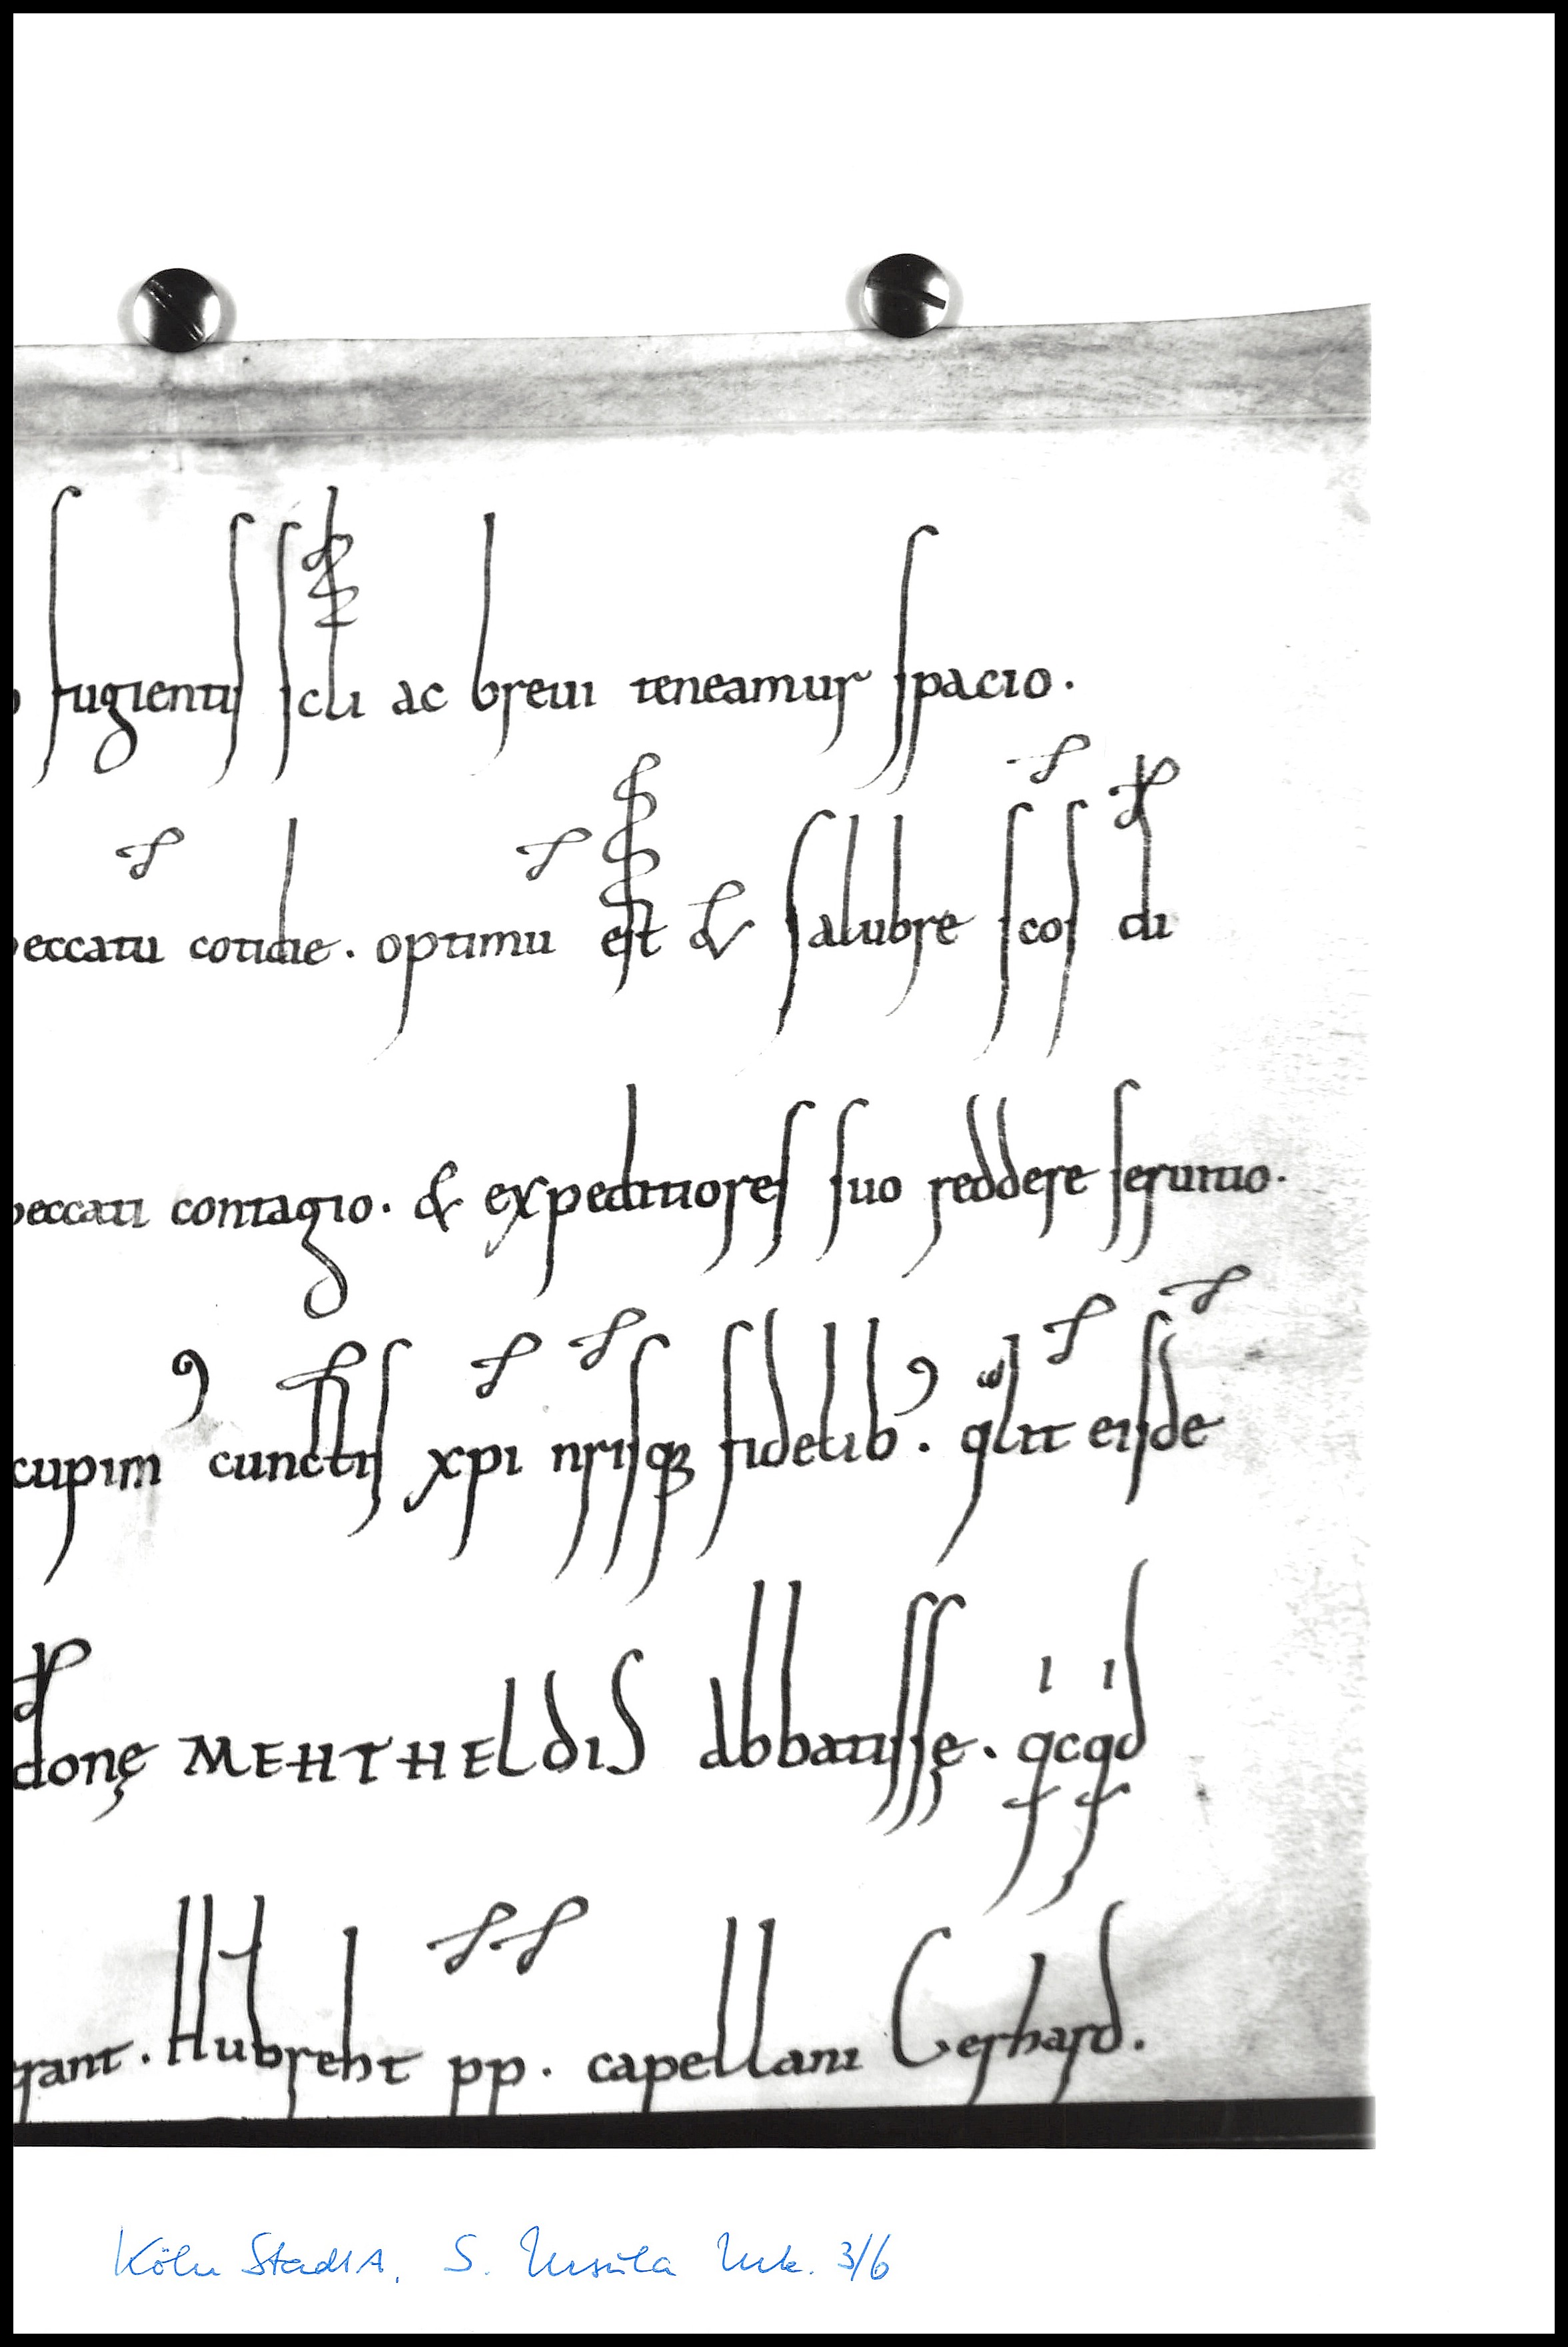 fugientis scli ac breui teneamur spacio.
eccatu cotidie. optimu est & salubre scos di
peccati contagio. & expeditiores suo reddere seruitio.
cupim⁹ cunctis xpi nrisq; fidelib⁹. qlit eisde
donę MEHTHELDIS abbatissę. qcqd
grant. Hubreht pp. capellani Gerhard.
Köln StadtA. S. Ursula Urk. 3/6